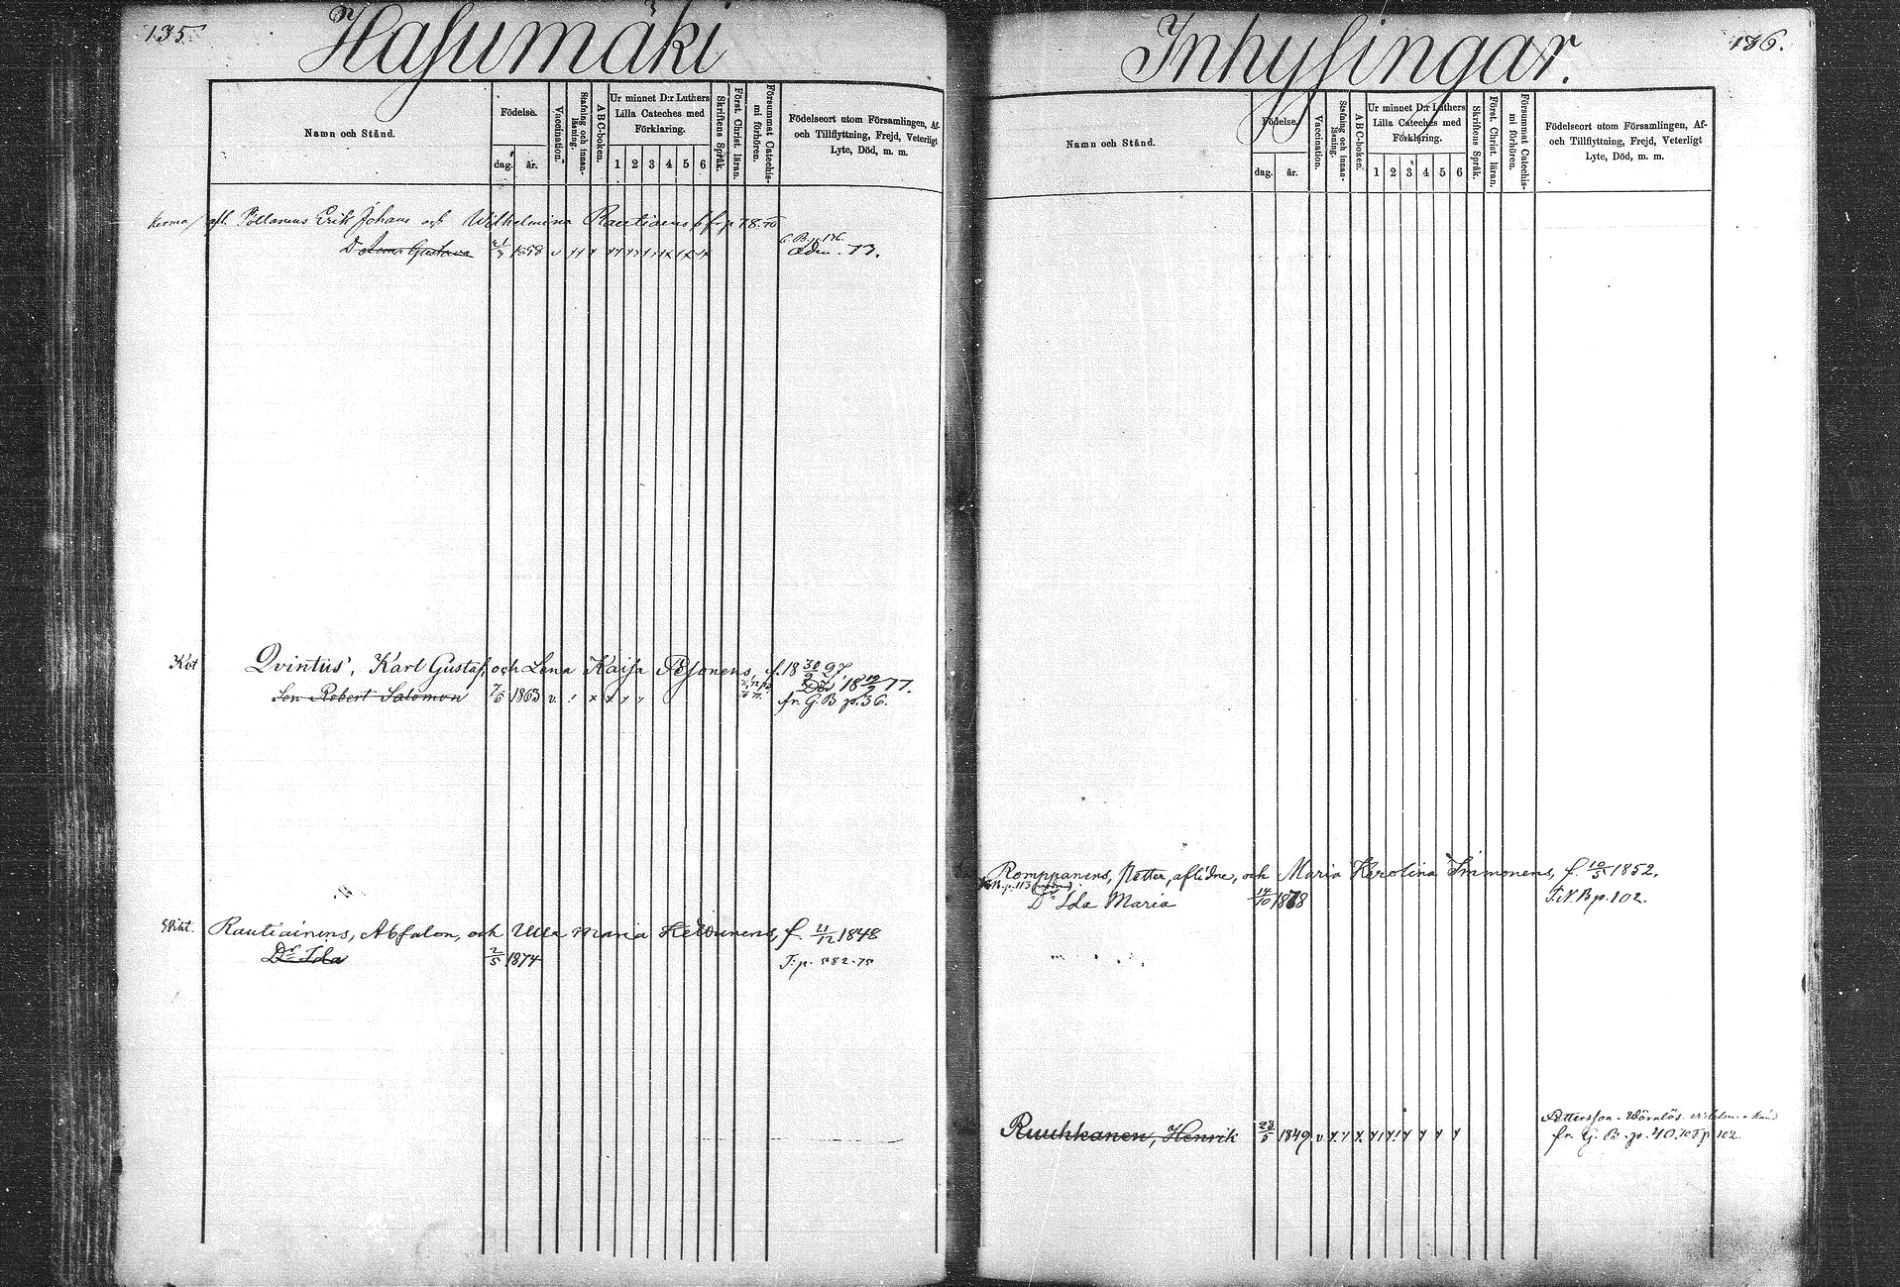 135.
Hasumäki
Namn och Stånd.
Födelse.
dag. år.
Vaccination.
Stafning och innanläsning.
ABC-boken.
Ur minnet D:r Luthers
Lilla Cateches med
Förklaring.
1 2 3 4 5 6
Skriftens Språk.
Först. Christ. läran.
Försummat Catechismi förhören.
Födelseort utom Församlingen, Af-
och Tillflyttning, Frejd, Veterligt
Lyte, Död, m. m.
Kerma afl. Erik Johans och Wilhelmina Rautiaens
D Gustava 1858
73.
Qvintus, Karl Gustaf, och Lena Kaisa Pesonens, f. 18 30/9 27
Son Robert Salomon 7/6 1863 v. Död 18 12/7 77.
fr. G. B p. 36.
Rautiainens, Absalon, och Ulla Maria f. 11/12 1848
Dr Ida 2/5 1874 T. p. 582-75
Inhysingar.
136.
Namn och Stånd.
Födelse.
dag. år.
Vaccination.
Stafning och innanläsning.
ABC-boken.
Ur minnet D:r Luthers
Lilla Cateches med
Förklaring.
1 2 3 4 5 6
Skriftens Språk.
Först. Christ. läran.
Försummat Catechismi förhören.
Födelseort utom Församlingen, Af-
och Tillflyttning, Frejd, Veterligt
Lyte, Död, m. m.
Romppanens, Petter, aflidne, och Maria Karolina Immonens, f. 10/5 1852.
Dr Ida Maria 14/10 1878 T. N. B p. 102.
Ruuhkanen, Henrik 23/5 1849 v
fr. G. B. p. 40. 102.